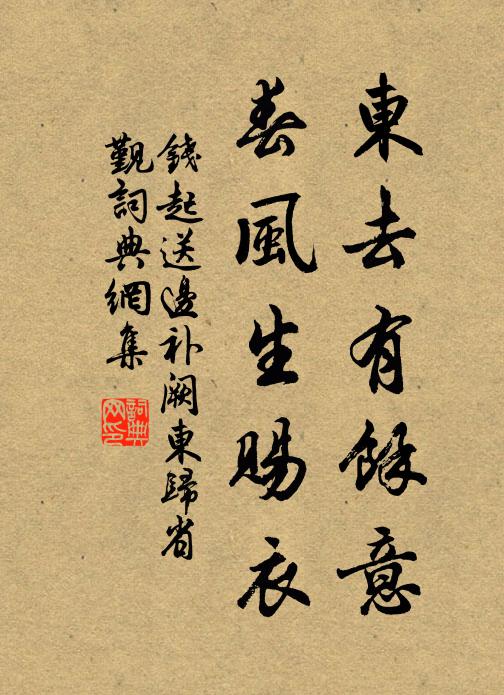 東去有餘意
春風生賜衣
錢起送邊补阙東歸省
觐詞典網集
詞典
网印